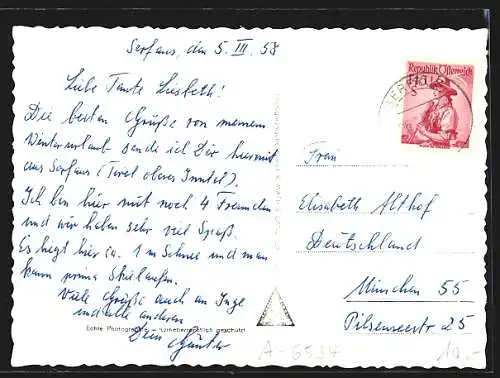 Serfaus, den 5. III. 58
Liebe Tante Liesbeth!
Die besten Grüße von meinem
Winterurlaub sende ich Dir hiermit
aus Serfaus (Tirol oberes Inntal).
Ich bin hier mit noch 4 Freunden
und wir haben sehr viel Spaß.
Es liegt hier ca. 1 m Schnee und man
kann prima Skilaufen.
Viele Grüße auch an Inge
und alle anderen
Dein Günter
Echte Photographie - Urheberrechtlich geschützt
Republik Österreich
Frau
Elisabeth Althof
Deutschland
München 55
Pilsenseestr 25
A-6534
10.-